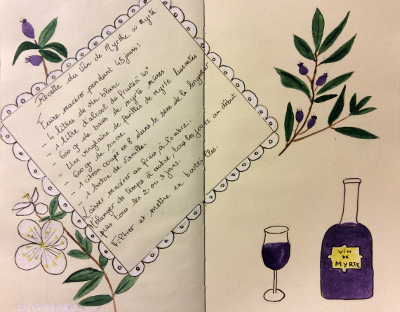 Recette du Vin de Myrthe ou Myrte
Faire macérer pendant 45 jours:
- 4 litres de vin blanc
- 1 litre d'alcool de fruits à 40°
- 600 gr de baies de myrte mûres
- Une vingtaine de feuilles de myrte luisantes
- 600 gr de sucre
- 1 citron coupé en 8 dans le sens de la longueur
- 1 bâton de vanille.
Laisser macérer au frais à l'ombre.
Mélanger de temps à autre tous les jours au début
puis tous les 2 ou 3 jours.
Filtrer et mettre en bouteilles.
VIN
DE
MYRTE